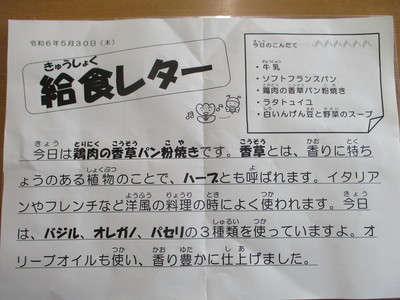 令和6年5月30日（木）
給食レター
きゅうしょく
今日のこんだて
・牛乳
・ソフトフランスパン
・鶏肉の香草パン粉焼き
・ラタトゥイユ
・白いんげん豆と野菜のスープ
今日は鶏肉の香草パン粉焼きです。香草とは、香りに特ち
ょうのある植物のことで、ハーブとも呼ばれます。イタリア
ンやフレンチなど洋風の料理の時によく使われます。今日
は、バジル、オレガノ、パセリの3種類を使っていますよ。オ
リーブオイルも使い、香り豊かに仕上げました。